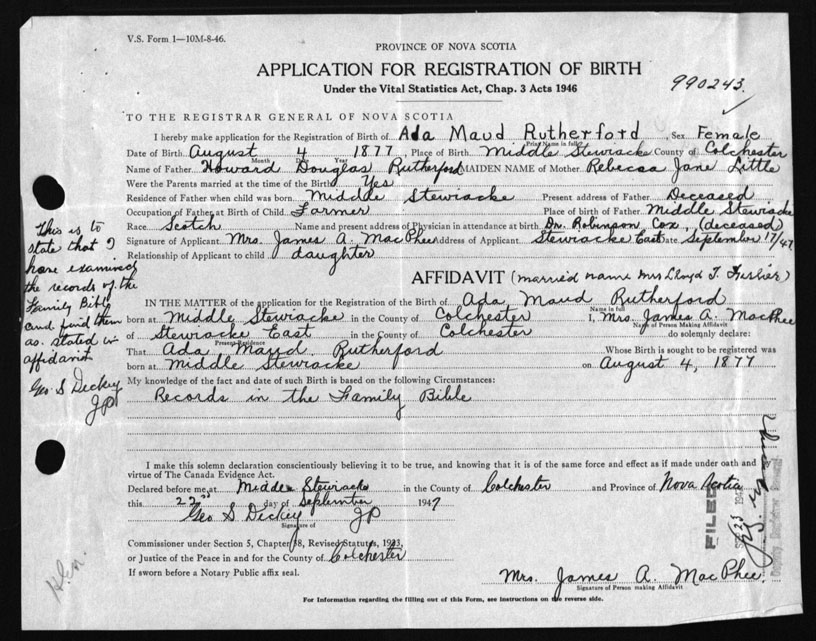 V.S. Form 1—10M-8-46.
PROVINCE OF NOVA SCOTIA
APPLICATION FOR REGISTRATION OF BIRTH
Under the Vital Statistics Act, Chap. 3 Acts 1946
990243
TO THE REGISTRAR GENERAL OF NOVA SCOTIA
I hereby make application for the Registration of Birth of Ada Maud Rutherford Sex Female
Print Name in full
Date of Birth August 4 1877 Place of Birth Middle Stewiacke County of Colchester
Month Day Year
Name of Father Howard Douglas Rutherford MAIDEN NAME of Mother Rebecca Jane Little
Were the Parents married at the time of the Birth Yes
Residence of Father when child was born Middle Stewiacke Present address of Father Deceased
Occupation of Father at Birth of Child Farmer Place of birth of Father Middle Stewiacke
Race Scotch Name and present address of Physician in attendance at birth Dr. Robinson Cox, (deceased)
Signature of Applicant Mrs. James A. MacPhee Address of Applicant Stewiacke East Date September 17/47
Relationship of Applicant to child daughter
AFFIDAVIT (married name Mrs Lloyd T.
IN THE MATTER of the application for the Registration of the Birth of Ada Maud Rutherford
Name in full
born at Middle Stewiacke in the County of Colchester I, Mrs. James A. MacPhee
Name of Person Making Affidavit
of Stewiacke East in the County of Colchester do solemnly declare:
Present Residence
That Ada Maud Rutherford Whose Birth is sought to be registered was
born at Middle Stewiacke on August 4, 1877
My knowledge of the fact and date of such Birth is based on the following Circumstances:
Records in the Family Bible
I make this solemn declaration conscientiously believing it to be true, and knowing that it is of the same force and effect as if made under oath and
virtue of The Canada Evidence Act.
Declared before me at Middle Stewiacke in the County of Colchester and Province of Nova Scotia
this 22nd day of September 1947
Geo S Dickey JP
Signature of
Commissioner under Section 5, Chapter 38, Revised Statutes, 1923,
or Justice of the Peace in and for the County of Colchester
If sworn before a Notary Public affix seal.
Mrs. James A. MacPhee
Signature of Person making Affidavit
For Information regarding the filling out of this Form, see instructions on the reverse side.
This is to
state that I
have examined
the records of the
Family Bible
and find them
as stated in
affidavit
Geo S Dickey
JP
FILED